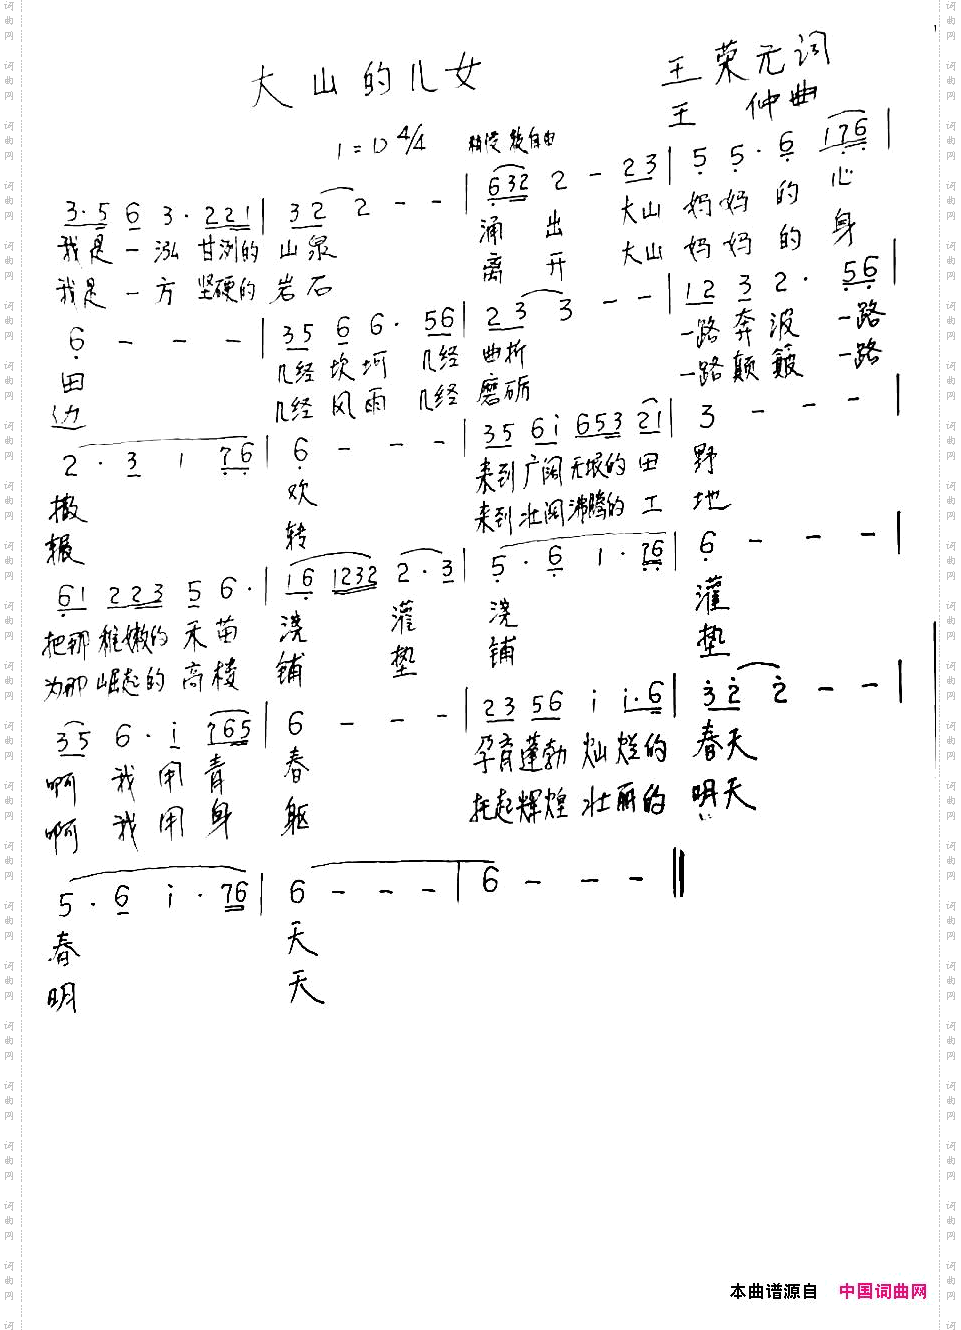 大山的儿女
王荣元词
王 仲曲
1=D 4/4 稍慢 较自由
3·5 6 3·221 | 32 2 - - | 632 2 - 23 | 5 5·6 176 |
我是一泓甘洌的山泉 涌出 大山妈妈的心
我是一方坚硬的岩石 离开 大山妈妈的身
6 - - - | 35 6 6·56 | 23 3 - - | 12 3 2·56 |
田 几经坎坷几经曲折 一路奔波一路
边 几经风雨几经磨砺 一路颠簸一路
2·3 1 76 | 6 - - - | 35 6i 653 21 | 3 - - - |
撒 欢 来到广阔无垠的田野
辗 转 来到壮阔沸腾的工地
61 223 5 6· | 16 1232 2·3 | 5·6 1·76 | 6 - - - |
把那稚嫩的禾苗 浇灌 浇灌
为那崛起的高楼 铺垫 铺垫
35 6·i 765 | 6 - - - | 23 56 i i·6 | 32 2 - - |
啊 我用青春 孕育蓬勃灿烂的春天
啊 我用身躯 托起辉煌壮丽的明天
5·6 i·76 | 6 - - - | 6 - - - ‖
春 天
明 天
本曲谱源自 中国词曲网